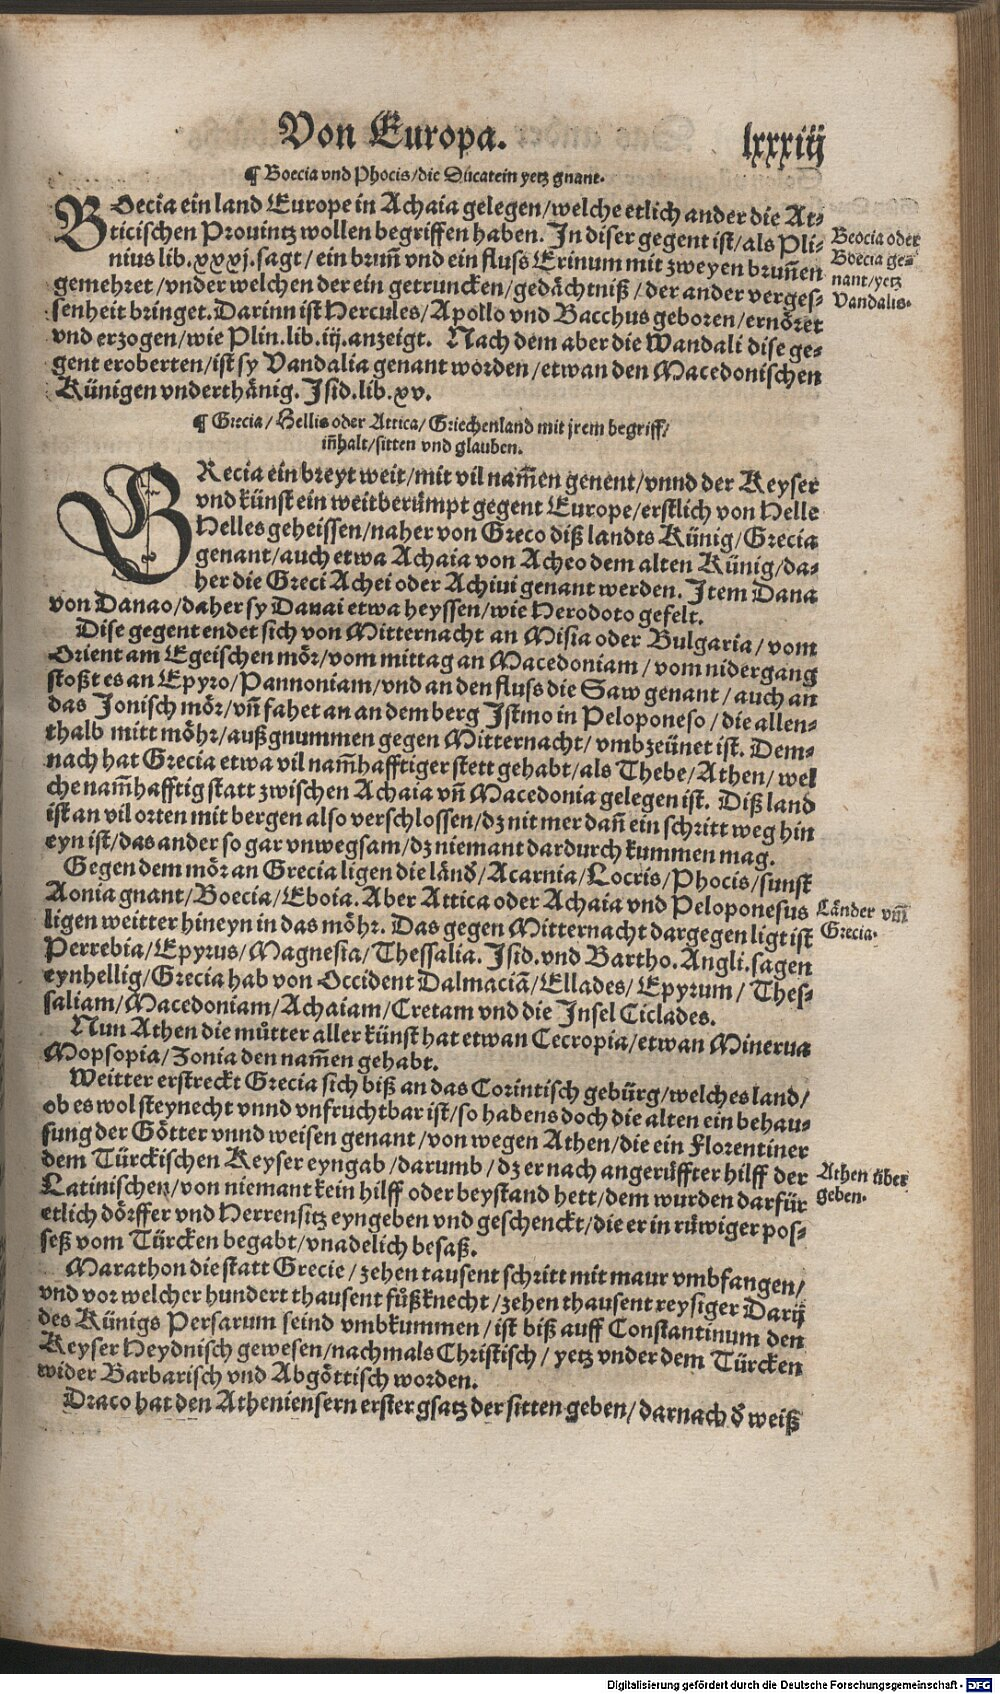 Von Europa. lxxxiij
¶ Boecia vnd Phocis/die Ducatein yetz gnant.
BOecia ein land Europe in Achaia gelegen/welche etlich ander die At-
ticischen Prouintz wollen begriffen haben. In diser gegent ist/als Pli-
nius lib.xxxj.sagt/ein brun̄ vnd ein fluss Erinum mit zweyen brun̄en
gemehret/vnder welchen der ein getruncken/gedächtniß/der ander verges-
senheit bringet. Darinn ist Hercules/Apollo vnd Bacchus geboren/ernöret
vnd erzogen/wie Plin.lib.iij.anzeigt. Nach dem aber die Wandali dise ge-
gent eroberten/ist sy Vandalia genant worden/etwan den Macedonischen
Künigen vnderthänig. Isid.lib.xv.
Beocia oder
Boecia ge-
nant/yetz
Vandalis.
¶ Grecia/Hellis oder Attica/Griechenland mit jrem begriff/
in̄halt/sitten vnd glauben.
GRecia ein breyt weit/mit vil nam̄en genent/vnnd der Keyser
vnd künst ein weitberümpt gegent Europe/erstlich von Helle
Helles geheissen/naher von Greco diß landts Künig/Grecia
genant/auch etwa Achaia von Acheo dem alten Künig/da-
her die Greci Achei oder Achiui genant werden. Item Dana
von Danao/daher sy Danai etwa heyssen/wie Herodoto gefelt.
Dise gegent endet sich von Mitternacht an Misia oder Bulgaria/vom
Orient am Egeischen mör/vom mittag an Macedoniam/vom nidergang
stoßt es an Epyro/Pannoniam/vnd an den fluss die Saw genant/auch an
das Jonisch mör/vn̄ fahet an an dem berg Istmo in Peloponeso/die allen-
thalb mitt möhr/außgnummen gegen Mitternacht/vmbzeünet ist. Dem-
nach hat Grecia etwa vil nam̄hafftiger stett gehabt/als Thebe/Athen/wel
che nam̄hafftig statt zwischen Achaia vn̄ Macedonia gelegen ist. Diß land
ist an vil orten mit bergen also verschlossen/dz nit mer dan̄ ein schritt weg hin
eyn ist/das ander so gar vnwegsam/dz niemant dardurch kummen mag.
Gegen dem mör an Grecia ligen die länd̕/Acarnia/Locris/Phocis/sunst
Aonia gnant/Boecia/Eboia. Aber Attica oder Achaia vnd Peloponesus
ligen weitter hineyn in das möhr. Das gegen Mitternacht dargegen ligt ist
Perrebia/Epyrus/Magnesia/Thessalia. Isid.vnd Bartho.Angli.sagen
eynhellig/Grecia hab von Occident Dalmaciā/Ellades/Epyrum/Thes-
saliam/Macedoniam/Achaiam/Cretam vnd die Insel Ciclades.
Länder vm̄
Grecia.
Nun Athen die můtter aller künst hat etwan Cecropia/etwan Minerua
Mopsopia/Zonia den nam̄en gehabt.
Weitter erstreckt Grecia sich biß an das Corintisch gebürg/welches land/
ob es wol steynecht vnnd vnfruchtbar ist/so habens doch die alten ein behau-
sung der Götter vnnd weisen genant/von wegen Athen/die ein Florentiner
dem Türckischen Keyser eyngab/darumb/dz er nach angerüffter hilff der
Latinischen/von niemant kein hilff oder beystand hett/dem wurden darfür
etlich dörffer vnd Herrensitz eyngeben vnd geschenckt/die er in rüwiger pos-
seß vom Türcken begabt/vnadelich besaß.
Athen über
geben.
Marathon die statt Grecie/zehen tausent schritt mit maur vmbfangen/
vnd vor welcher hundert thausent fůßknecht/zehen thausent reysiger Darij
des Künigs Persarum seind vmbkummen/ist biß auff Constantinum den
Keyser Heydnisch gewesen/nachmals Christisch/yetz vnder dem Türcken
wider Barbarisch vnd Abgöttisch worden.
Draco hat den Atheniensern erster gsatz der sitten geben/darnach d̕ weiß
Digitalisierung gefördert durch die Deutsche Forschungsgemeinschaft - DFG